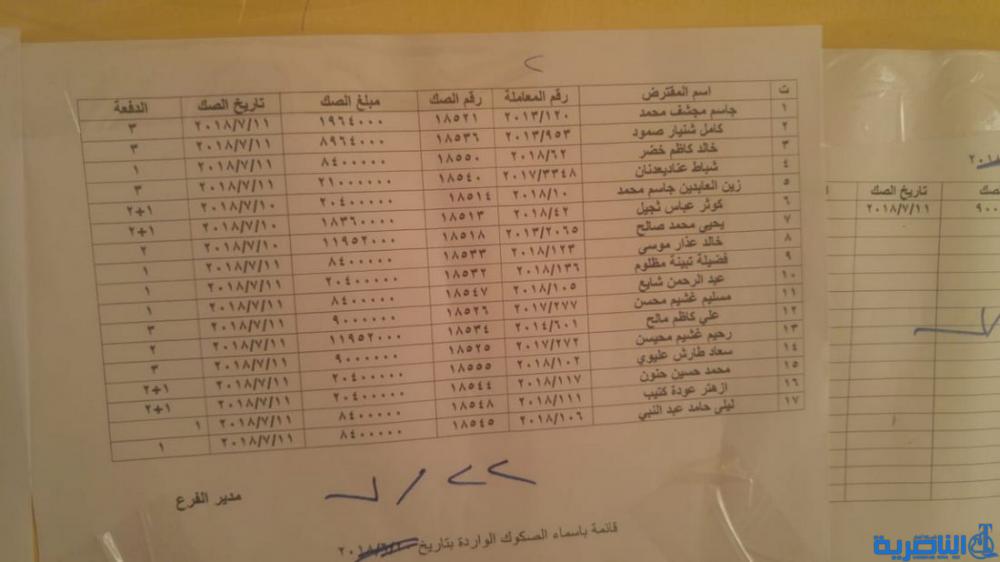 ٢
ت اسم المقترض رقم المعاملة رقم الصك مبلغ الصك تاريخ الصك الدفعة
١ جاسم مجشف محمد ٢٠١٣/١٢٠ ١٨٥٢١ ١٩٦٤٠٠٠ ٢٠١٨/٧/١١ ٣
٢ كامل شنيار صمود ٢٠١٣/٩٥٣ ١٨٥٣٦ ٨٩٦٤٠٠٠ ٢٠١٨/٧/١١ ٣
٣ خالد كاظم خضر ٢٠١٨/٦٢ ١٨٥٥٠ ٨٤٠٠٠٠٠ ٢٠١٨/٧/١١ ١
٤ شباط عناديعدنان ٢٠١٧/٣٣٤٨ ١٨٥٤٠ ٢١٠٠٠٠٠٠ ٢٠١٨/٧/١١ ٣
٥ زين العابدين جاسم محمد ٢٠١٨/١٠ ١٨٥١٤ ٢٠٤٠٠٠٠٠ ٢٠١٨/٧/١٠ ١+٢
٦ كوثر عباس ثجيل ٢٠١٨/٤٢ ١٨٥١٣ ١٨٣٦٠٠٠٠ ٢٠١٨/٧/١٠ ١+٢
٧ يحيى محمد صالح ٢٠١٣/٢٠٦٥ ١٨٥١٨ ١١٩٥٢٠٠٠ ٢٠١٨/٧/١٠ ٢
٨ خالد عذار موسى ٢٠١٨/١٢٣ ١٨٥٣٣ ٨٤٠٠٠٠٠ ٢٠١٨/٧/١١ ١
٩ فضيلة تبينة مظلوم ٢٠١٨/١٣٦ ١٨٥٣٢ ٢٠٤٠٠٠٠٠ ٢٠١٨/٧/١١ ١
١٠ عبد الرحمن شايع ٢٠١٨/١٠٥ ١٨٥٤٧ ٨٤٠٠٠٠٠ ٢٠١٨/٧/١١
١١ مسليم غشيم محسن ٢٠١٧/٢٧٧ ١٨٥٢٦ ٩٠٠٠٠٠٠ ٢٠١٨/٧/١١ ٣
١٢ علي كاظم مالح ٢٠١٤/٦٠١ ١٨٥٣٤ ١١٩٥٢٠٠٠ ٢٠١٨/٧/١١ ٢
١٣ رحيم غشيم محيسن ٢٠١٧/٢٧٢ ١٨٥٢٥ ٩٠٠٠٠٠٠ ٢٠١٨/٧/١١ ٣
١٤ سعاد طارش عليوي ٢٠١٨/١٠٢ ١٨٥٥٥ ٢٠٤٠٠٠٠٠ ٢٠١٨/٧/١١ ١+٢
١٥ محمد حسين حنون ٢٠١٨/١١٧ ١٨٥٤٤ ٢٠٤٠٠٠٠٠ ٢٠١٨/٧/١١ ١+٢
١٦ ازهر عودة كتيب ٢٠١٨/١١١ ١٨٥٤٨ ٨٤٠٠٠٠٠ ٢٠١٨/٧/١١ ١
١٧ ليلى حامد عبد النبي ٢٠١٨/١٠٦ ١٨٥٤٥ ٨٤٠٠٠٠٠ ٢٠١٨/٧/١١ ١
٢٢/٧
مدير الفرع
قائمة باسماء الصكوك الواردة بتاريخ
تاريخ الصك
٢٠١٨/٧/١١
الناصرية